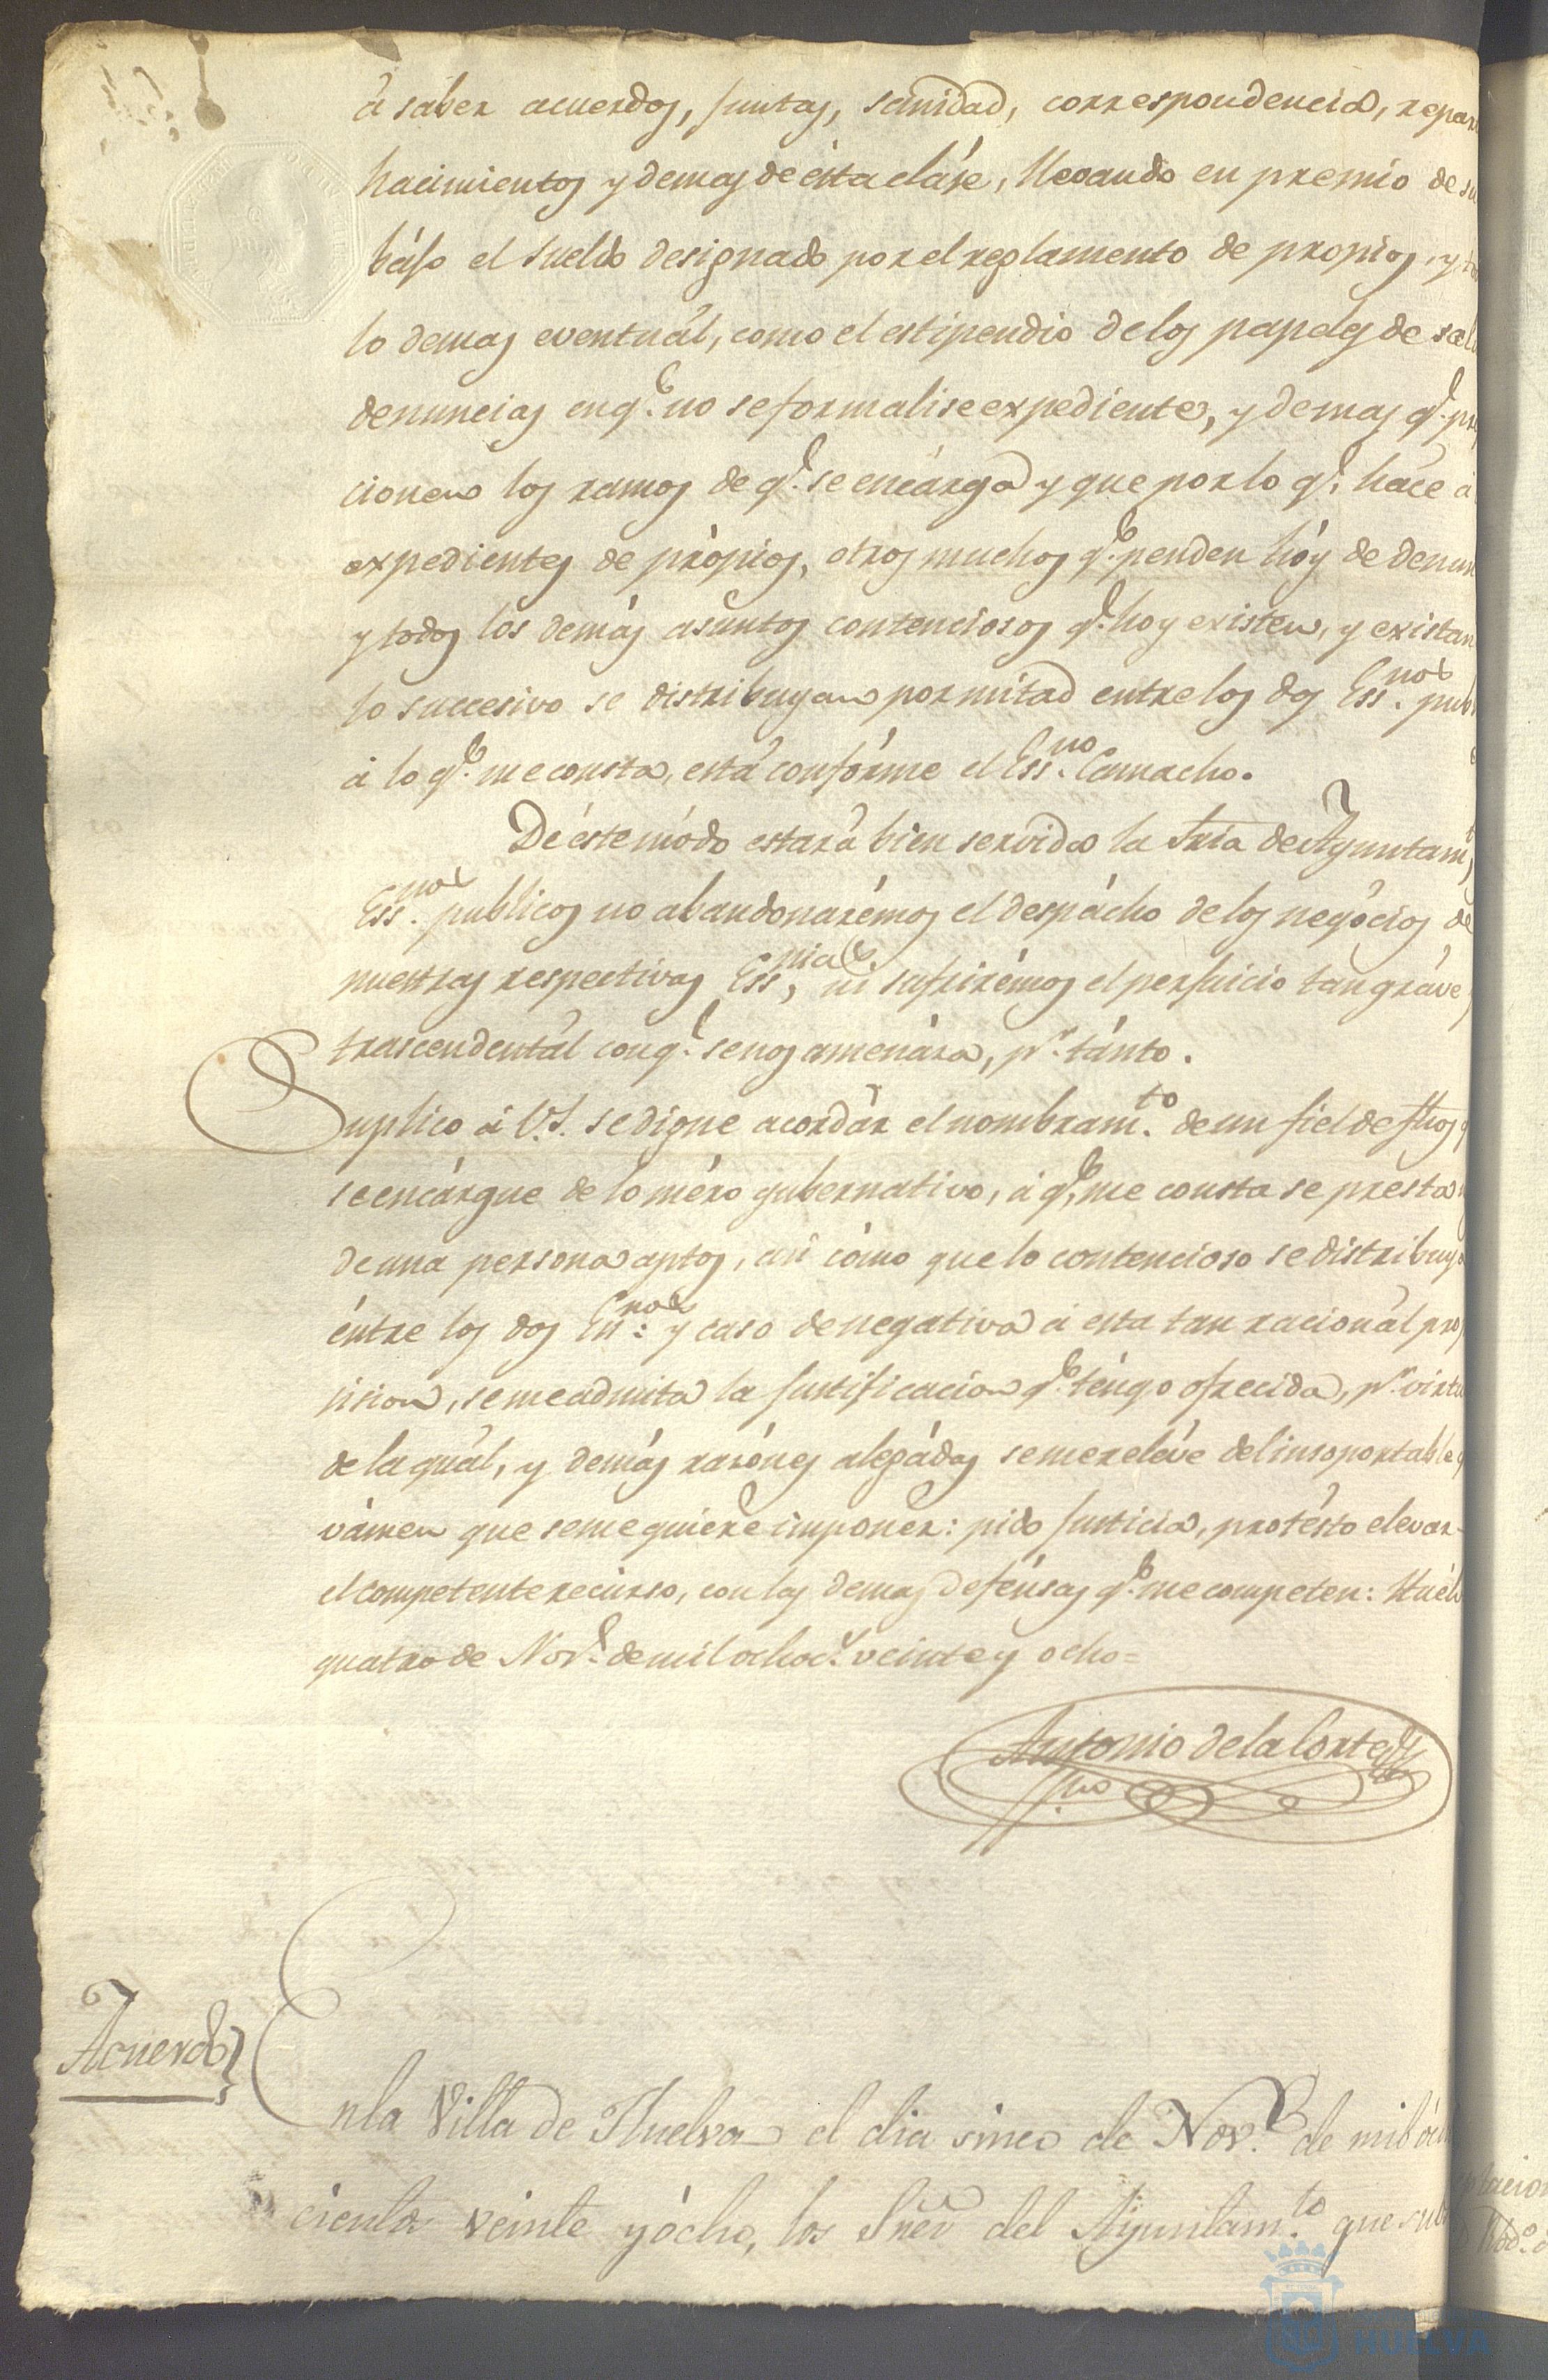 á sabér acuerdos, Juntas, sanidad, correspondencia, repar
hacimientos y demas de ésta cláse, llevando en premio de su
bájo el sueldo designado por el reglamento de propios, y to
lo demas eventuál, como el estipendio de los papeles de sal
denuncias en q.e no se formalise expediente, y demas q.e pro
cionen los ramos de q.e se encárga y que por lo q.e háce á
expedientes de própios, otros muchos q.e penden hóy de denun
y todos los demás asuntos contenciosos q.e hoy existen, y existan
lo succesivo se distribuyan por mitad entre los dos Ess.nos pub
á lo q.e me consta, está confórme el Ess.no Camacho.
De éste módo estará bien servida la Sria de Ayuntam.t
Ess.nos publicos no abandonarémos el despácho de los negócios de
nuestras respectivas Ess.nias, ni sufrirémos el perjuicio tan gráve
trascendentál con q.e se nos amenáza, p.r tánto.
Suplico á V.S. se digne acordár el nombram.to de un fiel de fhos
se encárgue de lo méro gubernativo, á q.e me consta se presta
de una persona aptos, así cómo que lo contencioso se distribuya
éntre los dos Ess.nos y caso de negativa á esta tan racionál pro
sision, se me admita la justificacion q.e téngo ofrecida, p.r virtu
de la quál, y demás razónes alegádas se me reléve del insoportable g
vámen que se me quiere imponer: pido justicia, protésto elevar
el competente recúrso, con las demas defénsas q.e me competen: Huelv
quatro de Nov.e de mil ochoc.s veinte y ocho=
Antonio de la Corte
Acuerdo}
En la Villa de Huelva el dia sinco de Nov.e de mil óch
cientos veinte y ócho, los Sñes del Ayuntam.to que sub
HUELVA